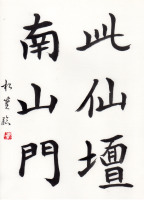 此仙壇
南山門